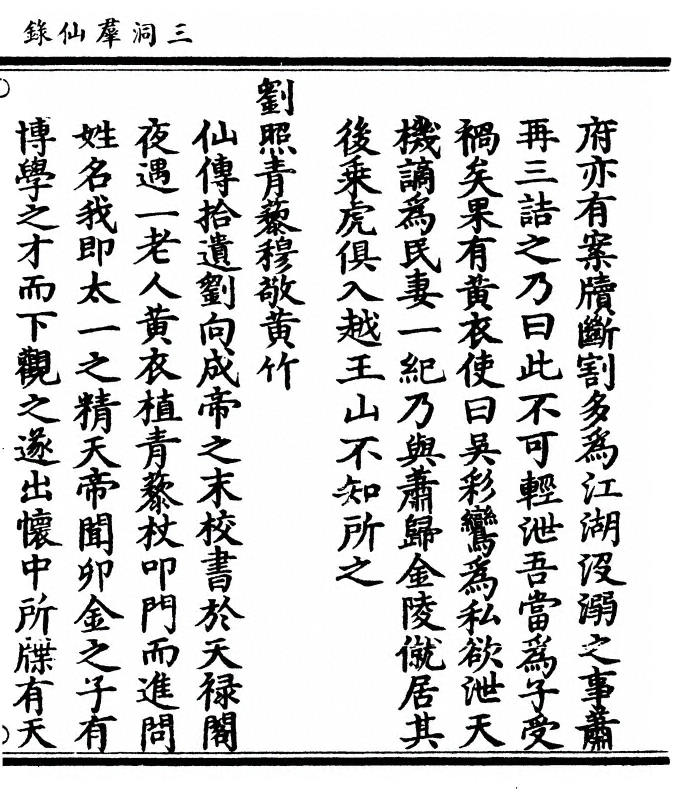 三洞羣仙錄
府亦有案牘斷割多為江湖没溺之事蕭
再三詰之乃曰此不可輕泄吾當為子受
禍矣果有黃衣使曰吳彩鸞為私欲泄天
機謫為民妻一紀乃與蕭歸金陵僦居其
後乘虎俱入越王山不知所之
劉照青藜穆敬黃竹
仙傳拾遺劉向成帝之末校書於天祿閣
夜遇一老人黃衣植青藜杖叩門而進問
姓名我即太一之精天帝聞卯金之子有
博學之才而下觀之遂出懷中所牒有天